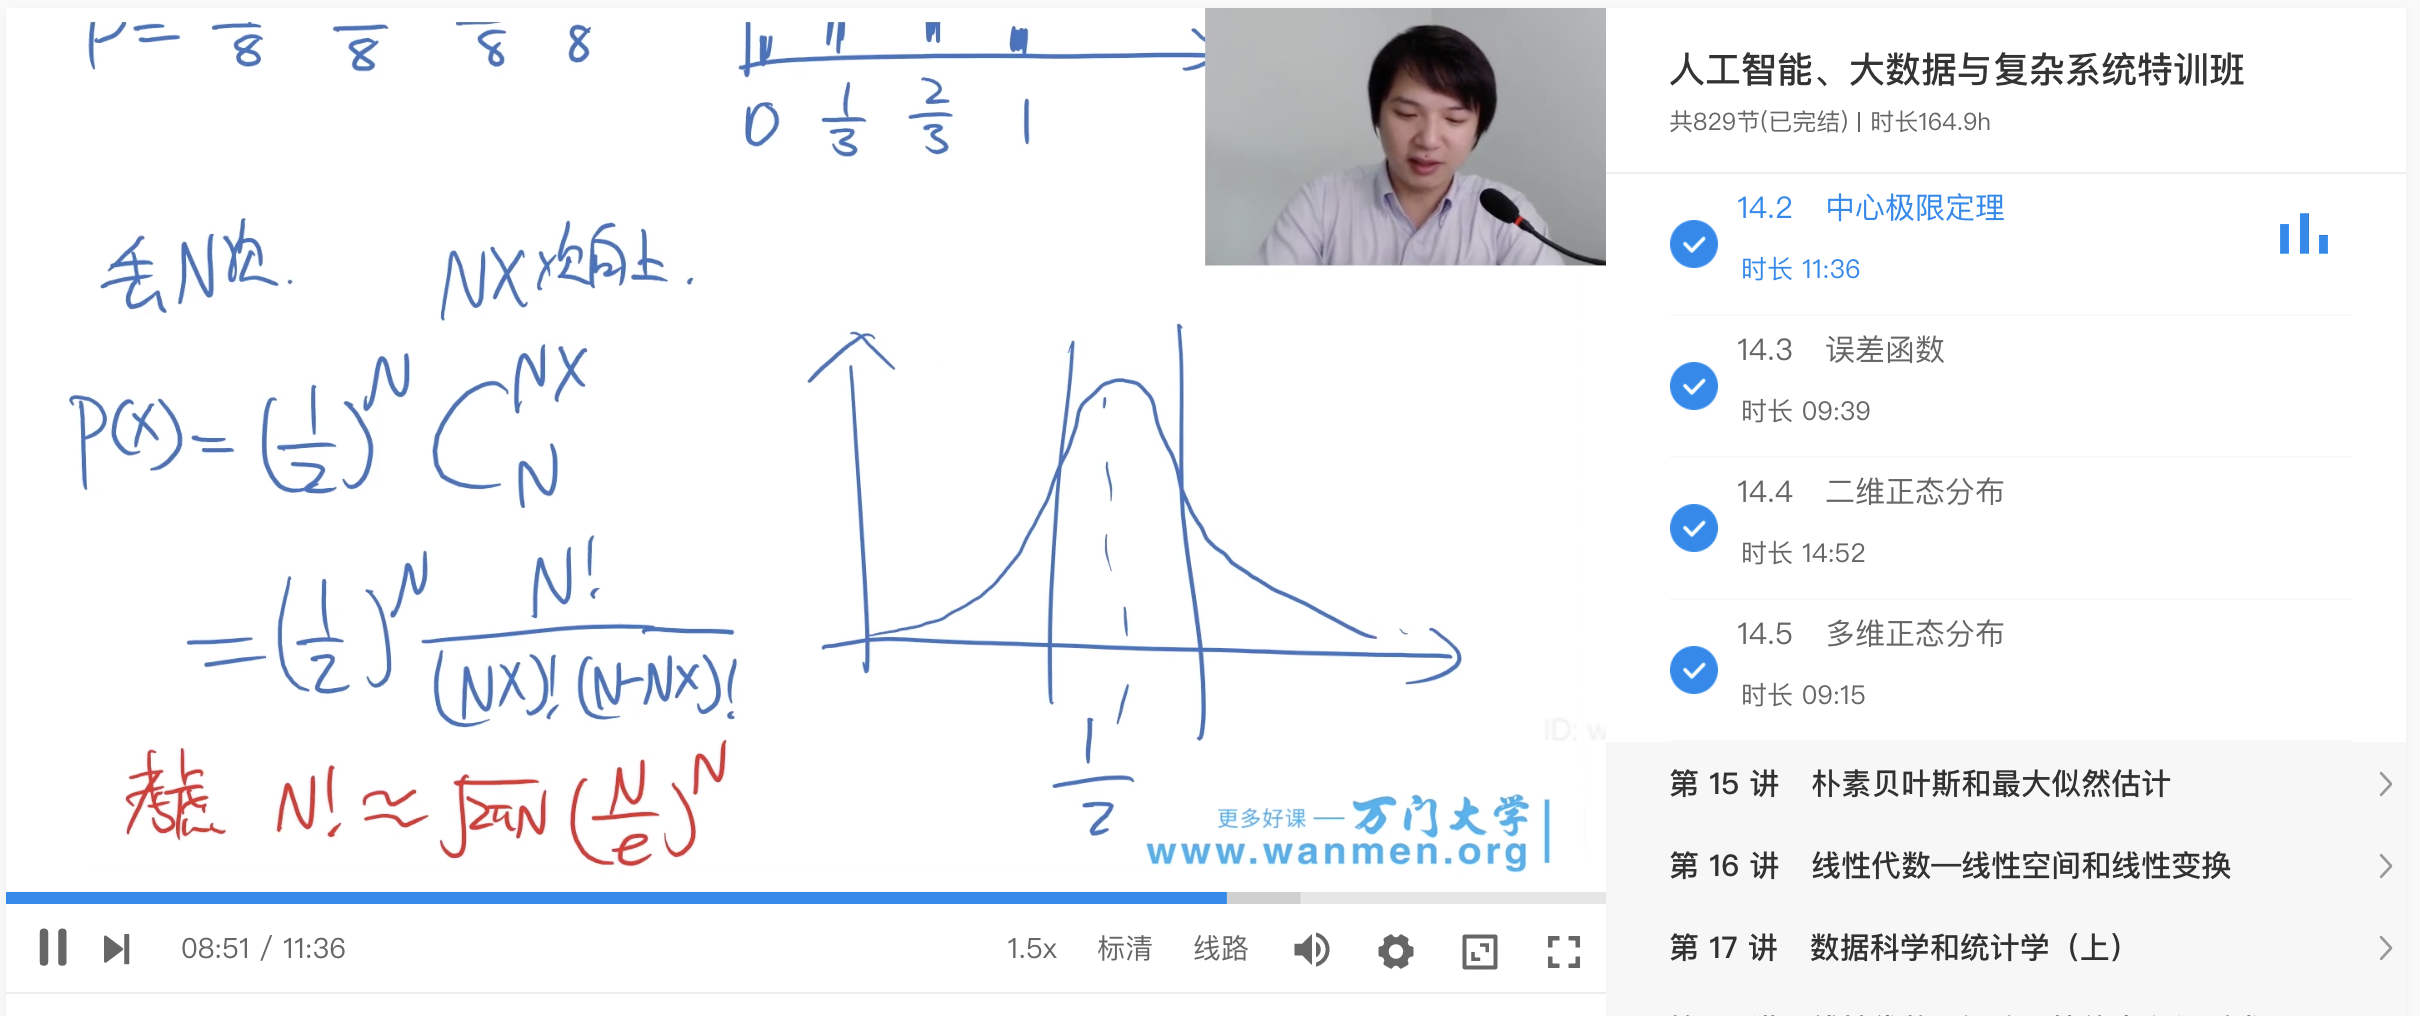 P = 8 8 8 8
0 1/3 2/3 1
丢N次. NX次向上.
P(X) = (1/2)^N C_N^{NX}
= (1/2)^N N! / (NX)! (N-NX)!
1/2
考虑 N! ≈ √2πN (N/e)^N
ID: w
更多好课 — 万门大学
www.wanmen.org
08:51 / 11:36
1.5x 标清 线路
人工智能、大数据与复杂系统特训班
共829节(已完结) | 时长164.9h
14.2 中心极限定理
时长 11:36
14.3 误差函数
时长 09:39
14.4 二维正态分布
时长 14:52
14.5 多维正态分布
时长 09:15
第 15 讲 朴素贝叶斯和最大似然估计
第 16 讲 线性代数—线性空间和线性变换
第 17 讲 数据科学和统计学（上）